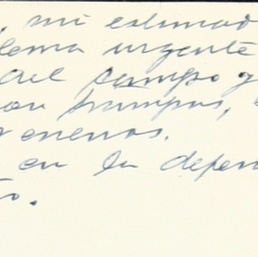 , mi estimad
lema urgente
del campo y
con trampas,
y enenos.
en la depen
o.